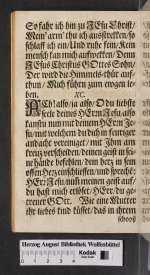 So fahr ich hin zu JEsu Christ/
Mein' arm' thu ich ausstrecken/so
schlaff ich ein/Und ruhe fein/Kein
mensch kan mich aufwecken/Denn
JEsus Christus GOttes Sohn/
Der wird die Himmels-thür auf-
thun/Mich führen zum ewgen le-
ben. XC.
ACh! also/ja also/O du liebste
seele deines HErrn JEsu,also
kanstu nun mit deinem HErrn JE-
su/mit welchem du dich in feuriger
andacht vereiniget/mit Jhm am
kreuz verscheiden/deinen geist in sei-
ne hände befehlen/dein herz in sein
offen Herz einschliessen/und sprechē:
HErr JEsu/nim meinen geist auf/
du hast mich erlöset/HErr/du ge-
treuer GOtt. Wie eine Mutter
ihr liebes kind küsset/das in ihrem
schooß
Herzog August Bibliothek Wolfenbüttel